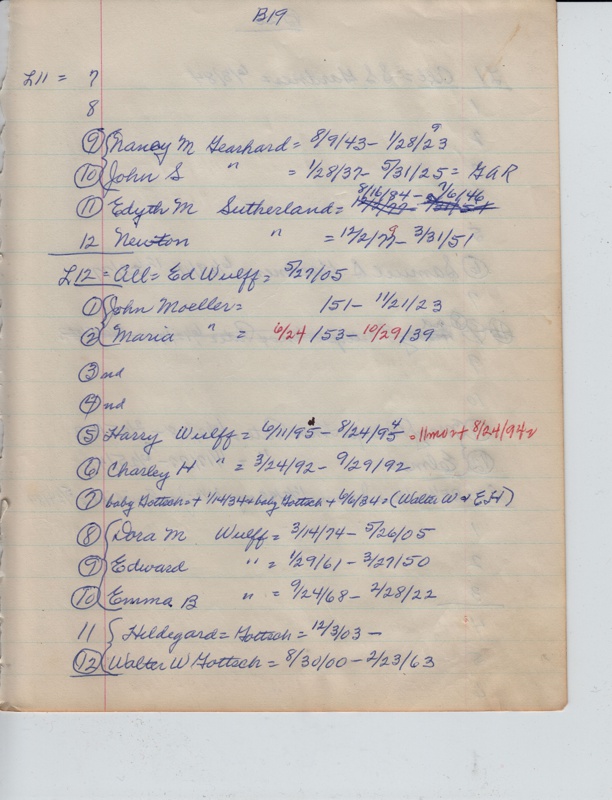 B19
L11 = 7
8
9 Nancy M Gearhard = 8/9/43 - 1/28/23 9
10 John S " = 1/28/37 - 5/31/25 = GAR
8/16/84 - 7/6/46
11 Edyth M Sutherland =
12 Newton " = 12/2/79 - 3/31/51
L12 = All = Ed Wulff = 5/27/05
1 John Moeller = /51 - 11/21/23
2 Maria " = 6/24/53 - 10/29/39
3 nd
4 nd
5 Harry Wulff = 6/11/95 - 8/24/95 4 = 11mo + 8/24/94
6 Charley H " = 3/24/92 - 9/29/92
7 baby Gottsch = + 1/14/34 + baby Gottsch + 6/6/34 = (Walter W & EH)
8 Dora M Wulff = 3/14/74 - 5/26/05
9 Edward " = 1/29/61 - 3/27/50
10 Emma B " = 9/24/68 - 2/28/22
11 Hildegard = Gottsch = 12/3/03 -
12 Walter W Gottsch = 8/30/00 - 2/23/63